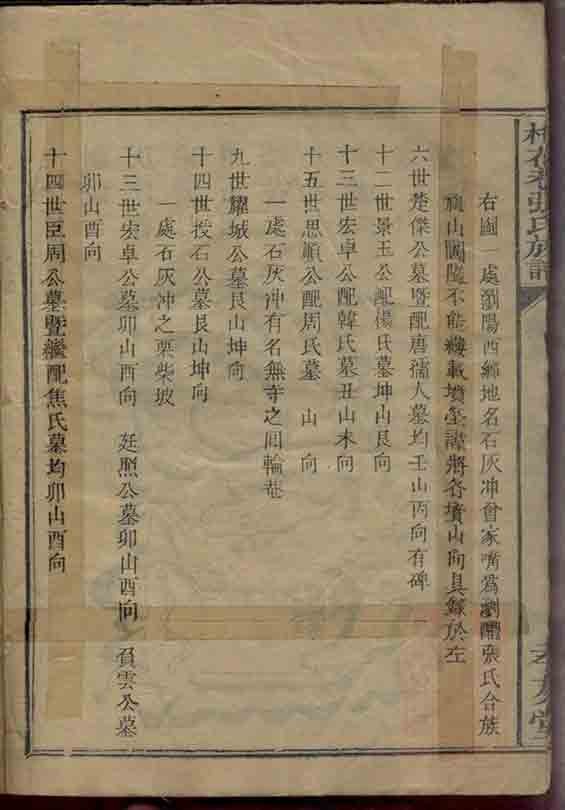 張氏族譜
右圖一處瀏陽西鄉地名石灰冲曾家嘴為瀏醴張氏合族
山圖隘不能縷載墳塋謹將各墳山向具錄於左
六世楚傑公墓暨配唐孺人墓均壬山丙向有碑
十二世景玉公配楊氏墓坤山艮向
十三世宏卓公配韓氏墓丑山未向
十五世思順公配周氏墓 山 向
一處石灰冲有名無寺之回輪菴
九世耀城公墓艮山坤向
十四世授石公墓艮山坤向
一處石灰冲之栗柴坡
十三世宏卓公墓卯山酉向 廷熙公墓卯山酉向 召雲公墓
卯山酉向
十四世臣周公墓暨繼配焦氏墓均卯山酉向